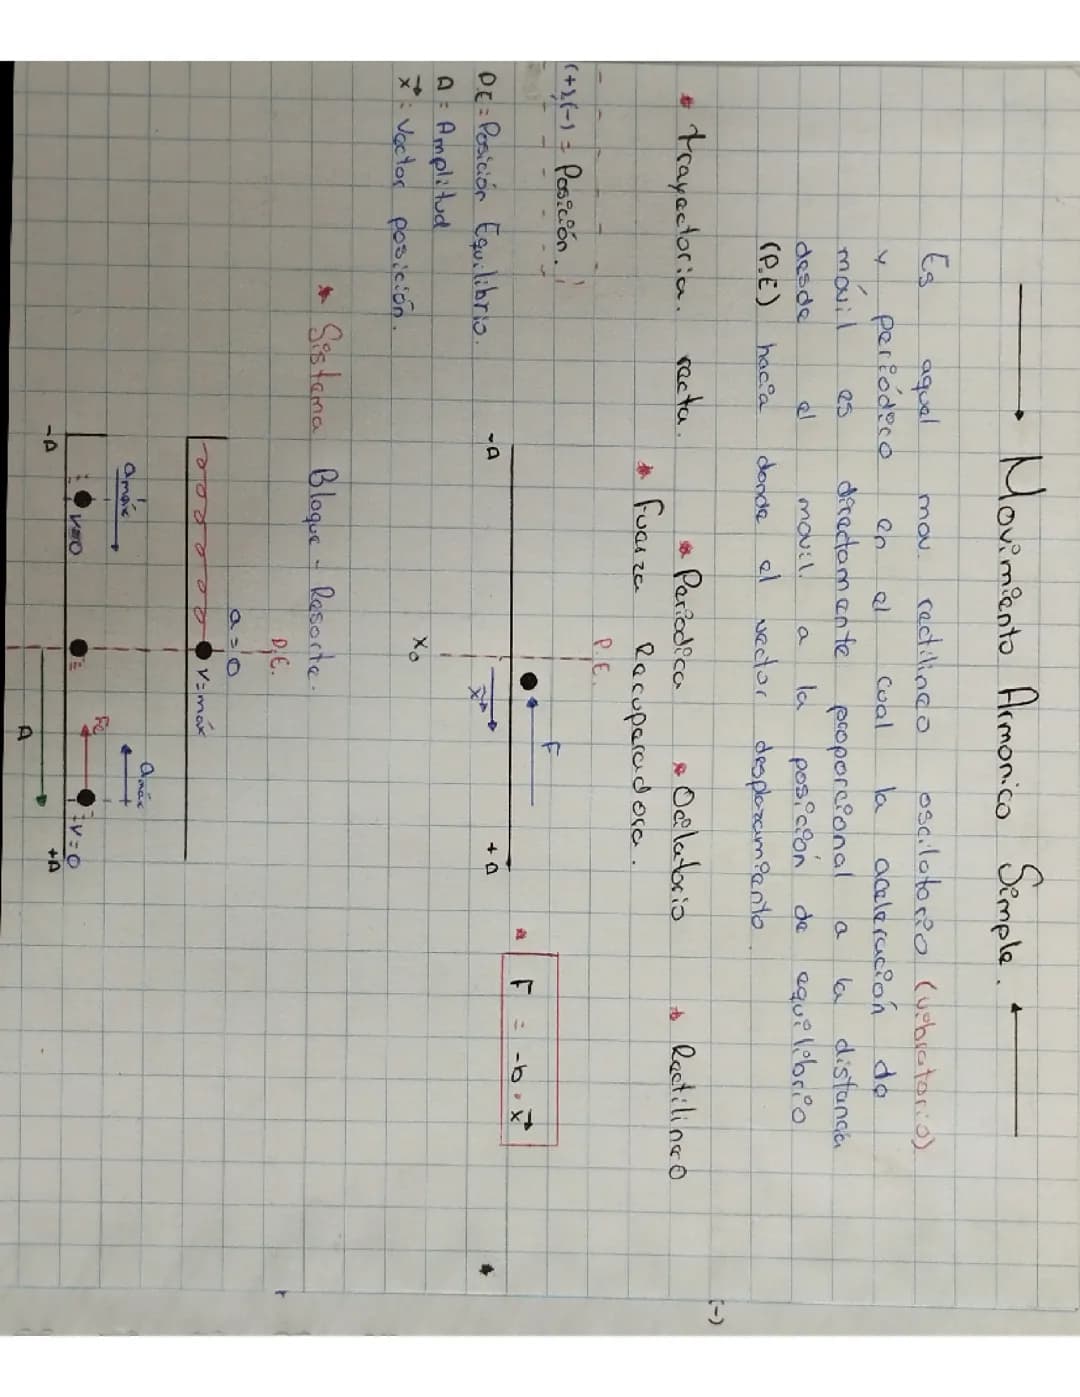 Movimiento Armonico Simple.
Es aquel mov. rectilineo oscilatorio (vibratorio)
y periódico en el cual la aceleración do
móvil es directamente proporcional a la distancia
desde el movil. a la posición de equilibrio
(P.E) hacia donde el vector desplazamiento.
* trayectoria. recta. * Periodica * Ocilatorio * Rectilineo
* Fuerza Recuperadora.
(+),(-) = Posición.
P.E = Posición Equilibrio.
A = Amplitud
x: Vector posición.
P.E.
F
-A +A
x
Xo
* F = -b . x
(-)
* Sistema Bloque - Resorte.
P.E.
a = 0
v = máx
amáx
amáx
Fe
v=0
v=0
-A
+A
A